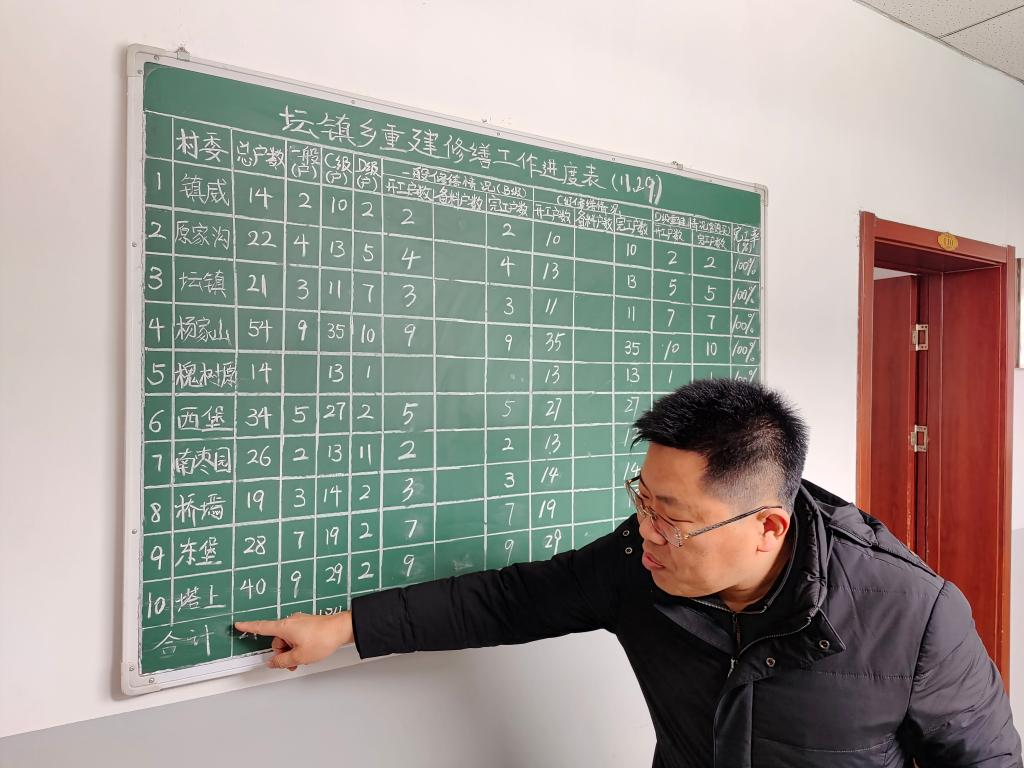 坛镇乡重建修缮工作进度表(11.29)
村委 总户数 一般(户) C级(户) D级(户) 一般修缮情况(B级) C级修缮情况 完工率(%)
开工户数 备料户数 完工户数 开工户数 备料户数 完工户数 开工户数 完工户数
1 镇威 14 2 10 2 2 2 10 10 2 2 100%
2 原家沟 22 4 13 5 4 4 13 13 5 5 100%
3 坛镇 21 3 11 7 3 3 11 11 7 7 100%
4 杨家山 54 9 35 10 9 9 35 35 10 10 100%
5 槐树原 14 13 1 13 13 1
6 西堡 34 5 27 2 5 5 27 27
7 南枣园 26 2 13 11 2 2 13
8 桥墙 19 3 14 2 3 3 14 14
9 东堡 28 7 19 2 7 7 19
10 塔上 40 9 29 2 9 9 29
合计